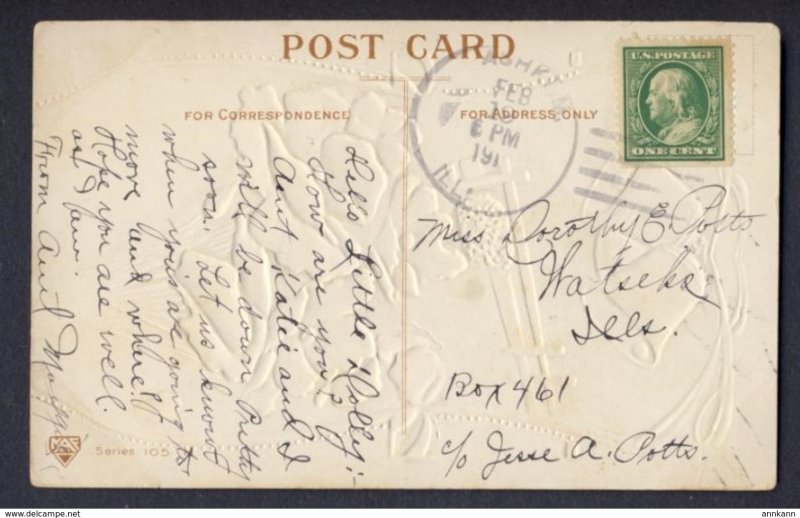 POST CARD
FOR CORRESPONDENCE
FOR ADDRESS ONLY
U.S. POSTAGE
ONE CENT
FEB
6 PM
191
ILL.
Hello Little Dolly:-
How are you?
Aunt Katie and I
will be down Pretty
soon. Let us know
when your are going to
move and where?
Hope you are well.
as I am.
From Aunt
Miss Dorothy E. Potts
Watseka
Ills.
Box 461
c/o Jesse A. Potts.
Series 105
hipstamp.com
annkann